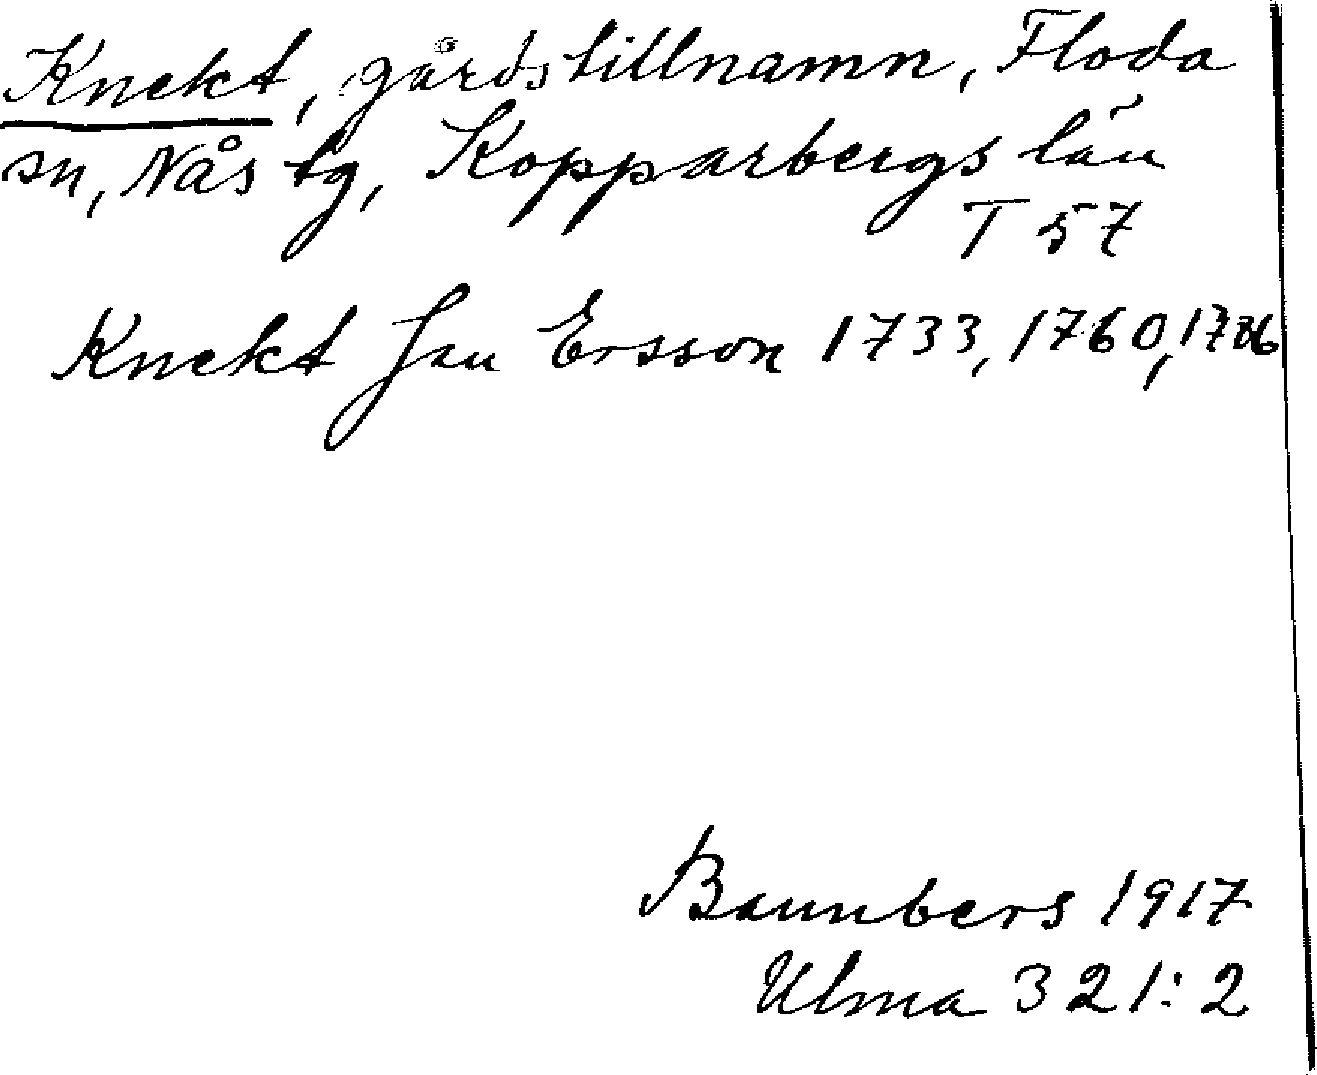 Knekt, gårdstillnamn, Floda
sn, Nås tg, Kopparbergs län
T 57
Knekt Jan Ersson 1733, 1760,
Baunbers 1917
Ulma 321:2